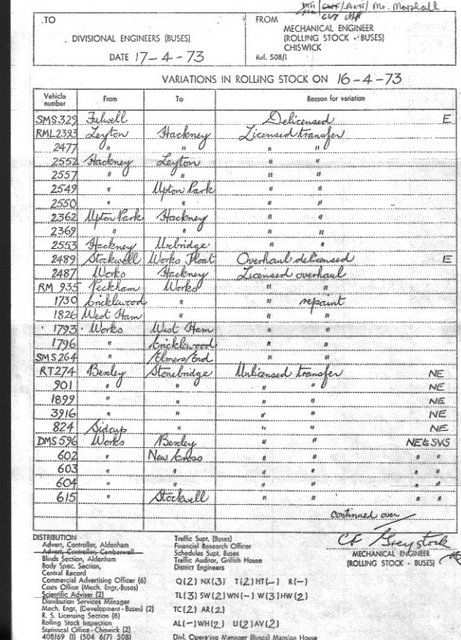 Mr. Marshall
TO
DIVISIONAL ENGINEERS (BUSES)
DATE 17-4-73
FROM
MECHANICAL ENGINEER
(ROLLING STOCK - BUSES)
CHISWICK
Ref. 508/1
VARIATIONS IN ROLLING STOCK ON 16-4-73
Vehicle number From To Reason for variation
SMS 329 Fulwell Delicensed E
RML 2393 Leyton Hackney Licensed transfer
2477 " " " "
2552 Hackney Leyton " "
2557 " " " "
2549 " Upton Park " "
2550 " " " "
2362 Upton Park Hackney " "
2369 " " " "
2553 Hackney Uxbridge " "
2489 Stockwell Works Float Overhaul delicensed E
2487 Works Hackney Licensed overhaul
RM 935 Peckham Works " "
1730 Cricklewood " " repaint
1826 West Ham " " "
1793 Works West Ham " "
1796 " Cricklewood " "
SMS 264 " Elmers End " "
RT 274 Bexley Stonebridge Unlicensed transfer NE
901 " " " " NE
1899 " " " " NE
3916 " " " " NE
824 Sidcup " " " NE
DMS 596 Works Bexley " " NE & SVS
602 " New Cross " " " "
603 " " " " " "
604 " " " " " "
615 " Stockwell " " " "
continued over
MECHANICAL ENGINEER
(ROLLING STOCK - BUSES)
DISTRIBUTION
Advert, Controller, Aldenham
Advert, Controller, Camberwell
Blinds Section, Aldenham
Body Spec, Section,
Central Record
Commercial Advertising Officer (6)
Costs Office (Mech, Engr-Buses)
Scientific Adviser (2)
Distribution Services Manager
Mech, Engr, (Development - Buses) (2)
R. S. Licensing Section (8)
Rolling Stock Inspection
Statistical Office - Chiswick (2)
408/69 (1) (504 617) 508
Traffic Supt, (Buses)
Financial Research Officer
Schedules Supt. Buses
Traffic Auditor, Griffith House
District Engineers
Q(2) NX(3) T(2) HT(-) R(-)
TL(3) SW(2) WN(-) W(3) HW(2)
TC(2) AR(2)
AL(-) WH(2) U(2) AV(2)
Divl. Operating Manager (Buses) Mansion House